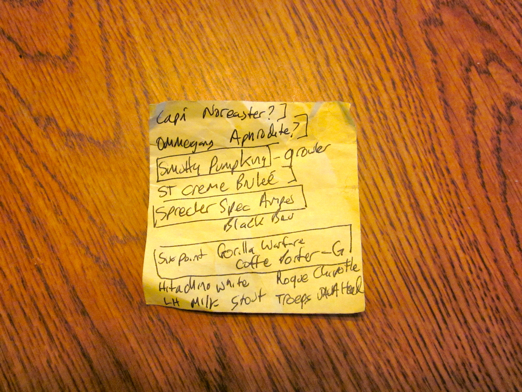 Capt Noreaster?]
Ommegang Aphrodite?]
Smutty Pumpking - growler
ST Creme Brulee
Sprecher Spec Amber
Black Bav
Sixpoint Gorilla Warfare
Coffe Porter - G
Hitachino white Rogue Chipotle
LH Milk Stout Troegs JAVA Head